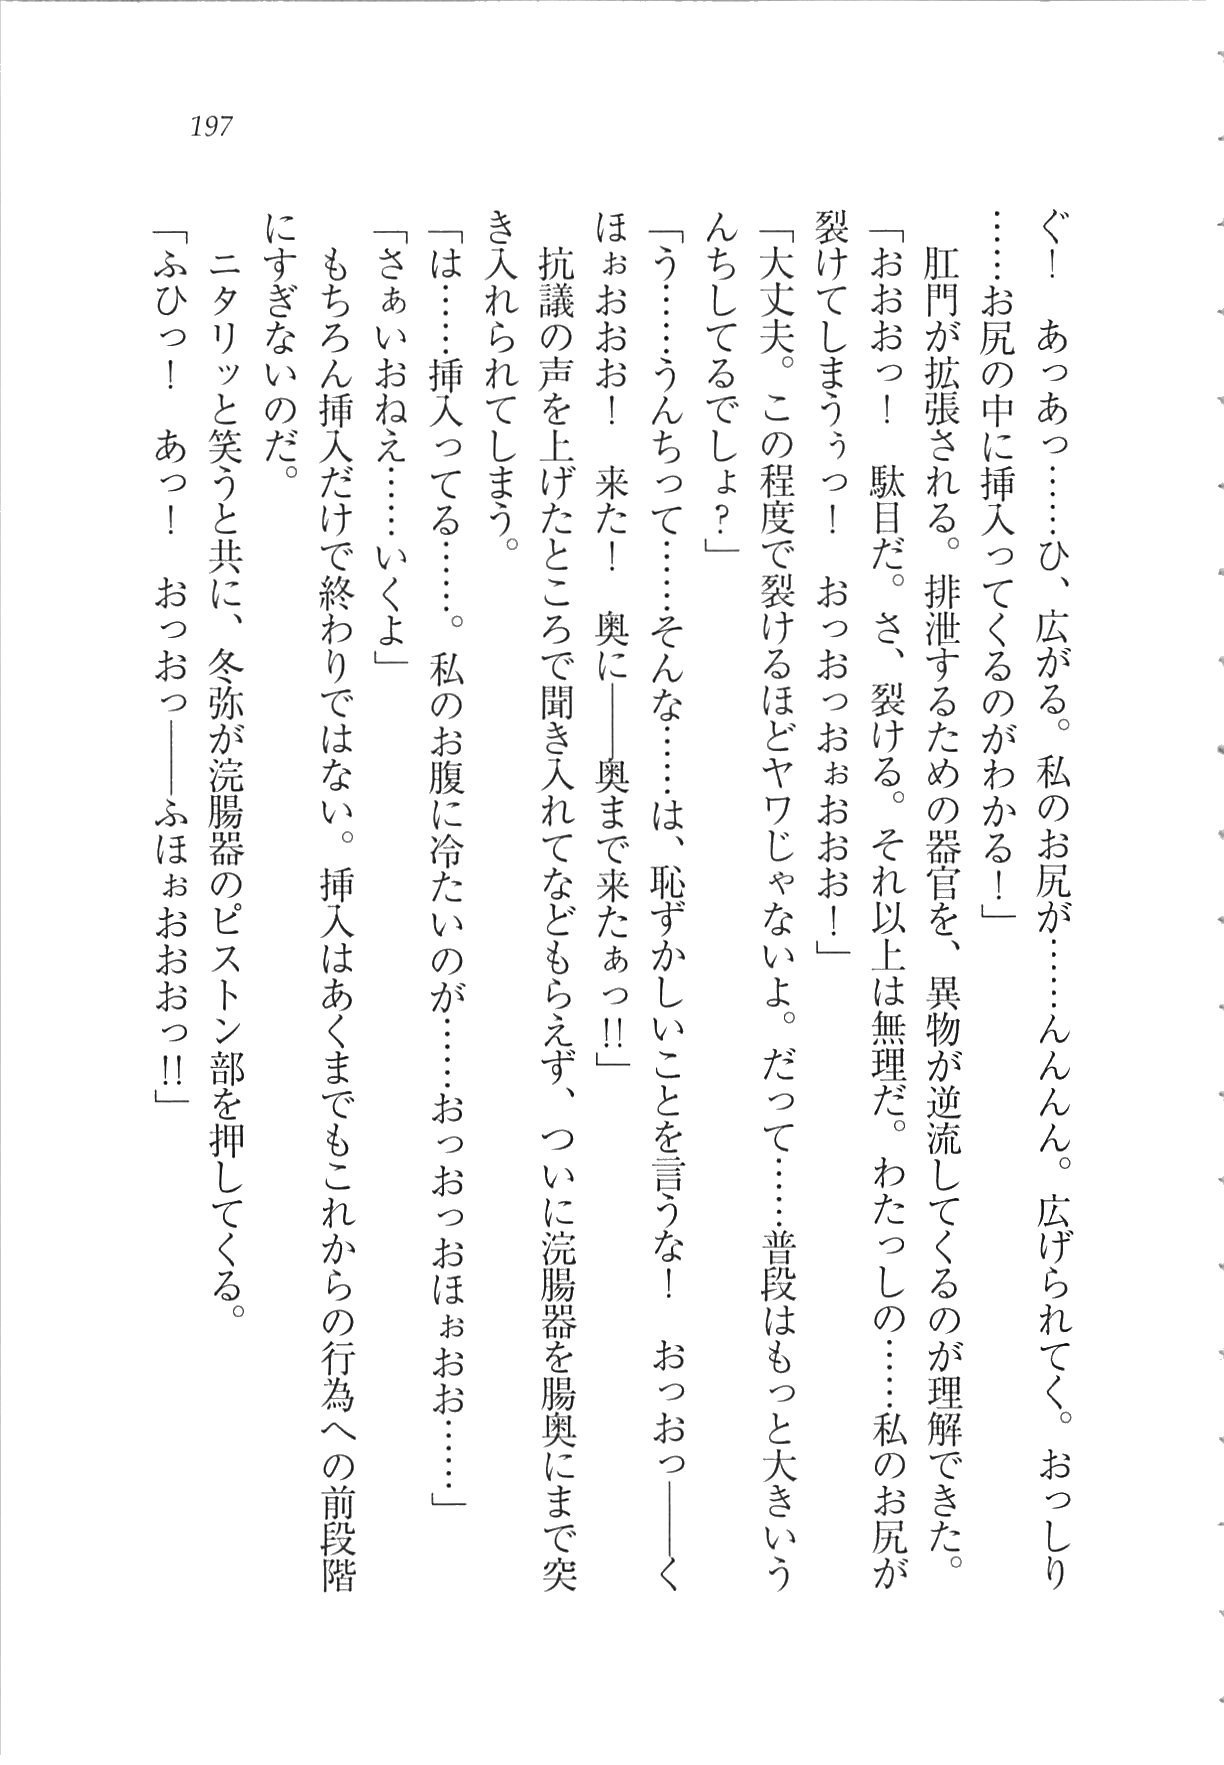 197
ぐ！　あっあっ……ひ、広がる。私のお尻が……んんん。広げられてく。おっしり
……お尻の中に挿入ってくるのがわかる！」
　肛門が拡張される。排泄するための器官を、異物が逆流してくるのが理解できた。
「おおおっ！　駄目だ。さ、裂ける。それ以上は無理だ。わたっしの……私のお尻が
裂けてしまうぅっ！　おっおっおぉおおお！」
「大丈夫。この程度で裂けるほどヤワじゃないよ。だって……普段はもっと大きいう
んちしてるでしょ？」
「う……うんちって……そんな……は、恥ずかしいことを言うな！　おっおっ――く
ほぉおおお！　来た！　奥に――奥まで来たぁっ!!」
　抗議の声を上げたところで聞き入れてなどもらえず、ついに浣腸器を腸奥にまで突
き入れられてしまう。
「は……挿入ってる……。私のお腹に冷たいのが……おっおっおほぉおお……」
「さぁいおねえ……いくよ」
　もちろん挿入だけで終わりではない。挿入はあくまでもこれからの行為への前段階
にすぎないのだ。
　ニタリッと笑うと共に、冬弥が浣腸器のピストン部を押してくる。
「ふひっ！　あっ！　おっおっ――ふほぉおおおっ!!」